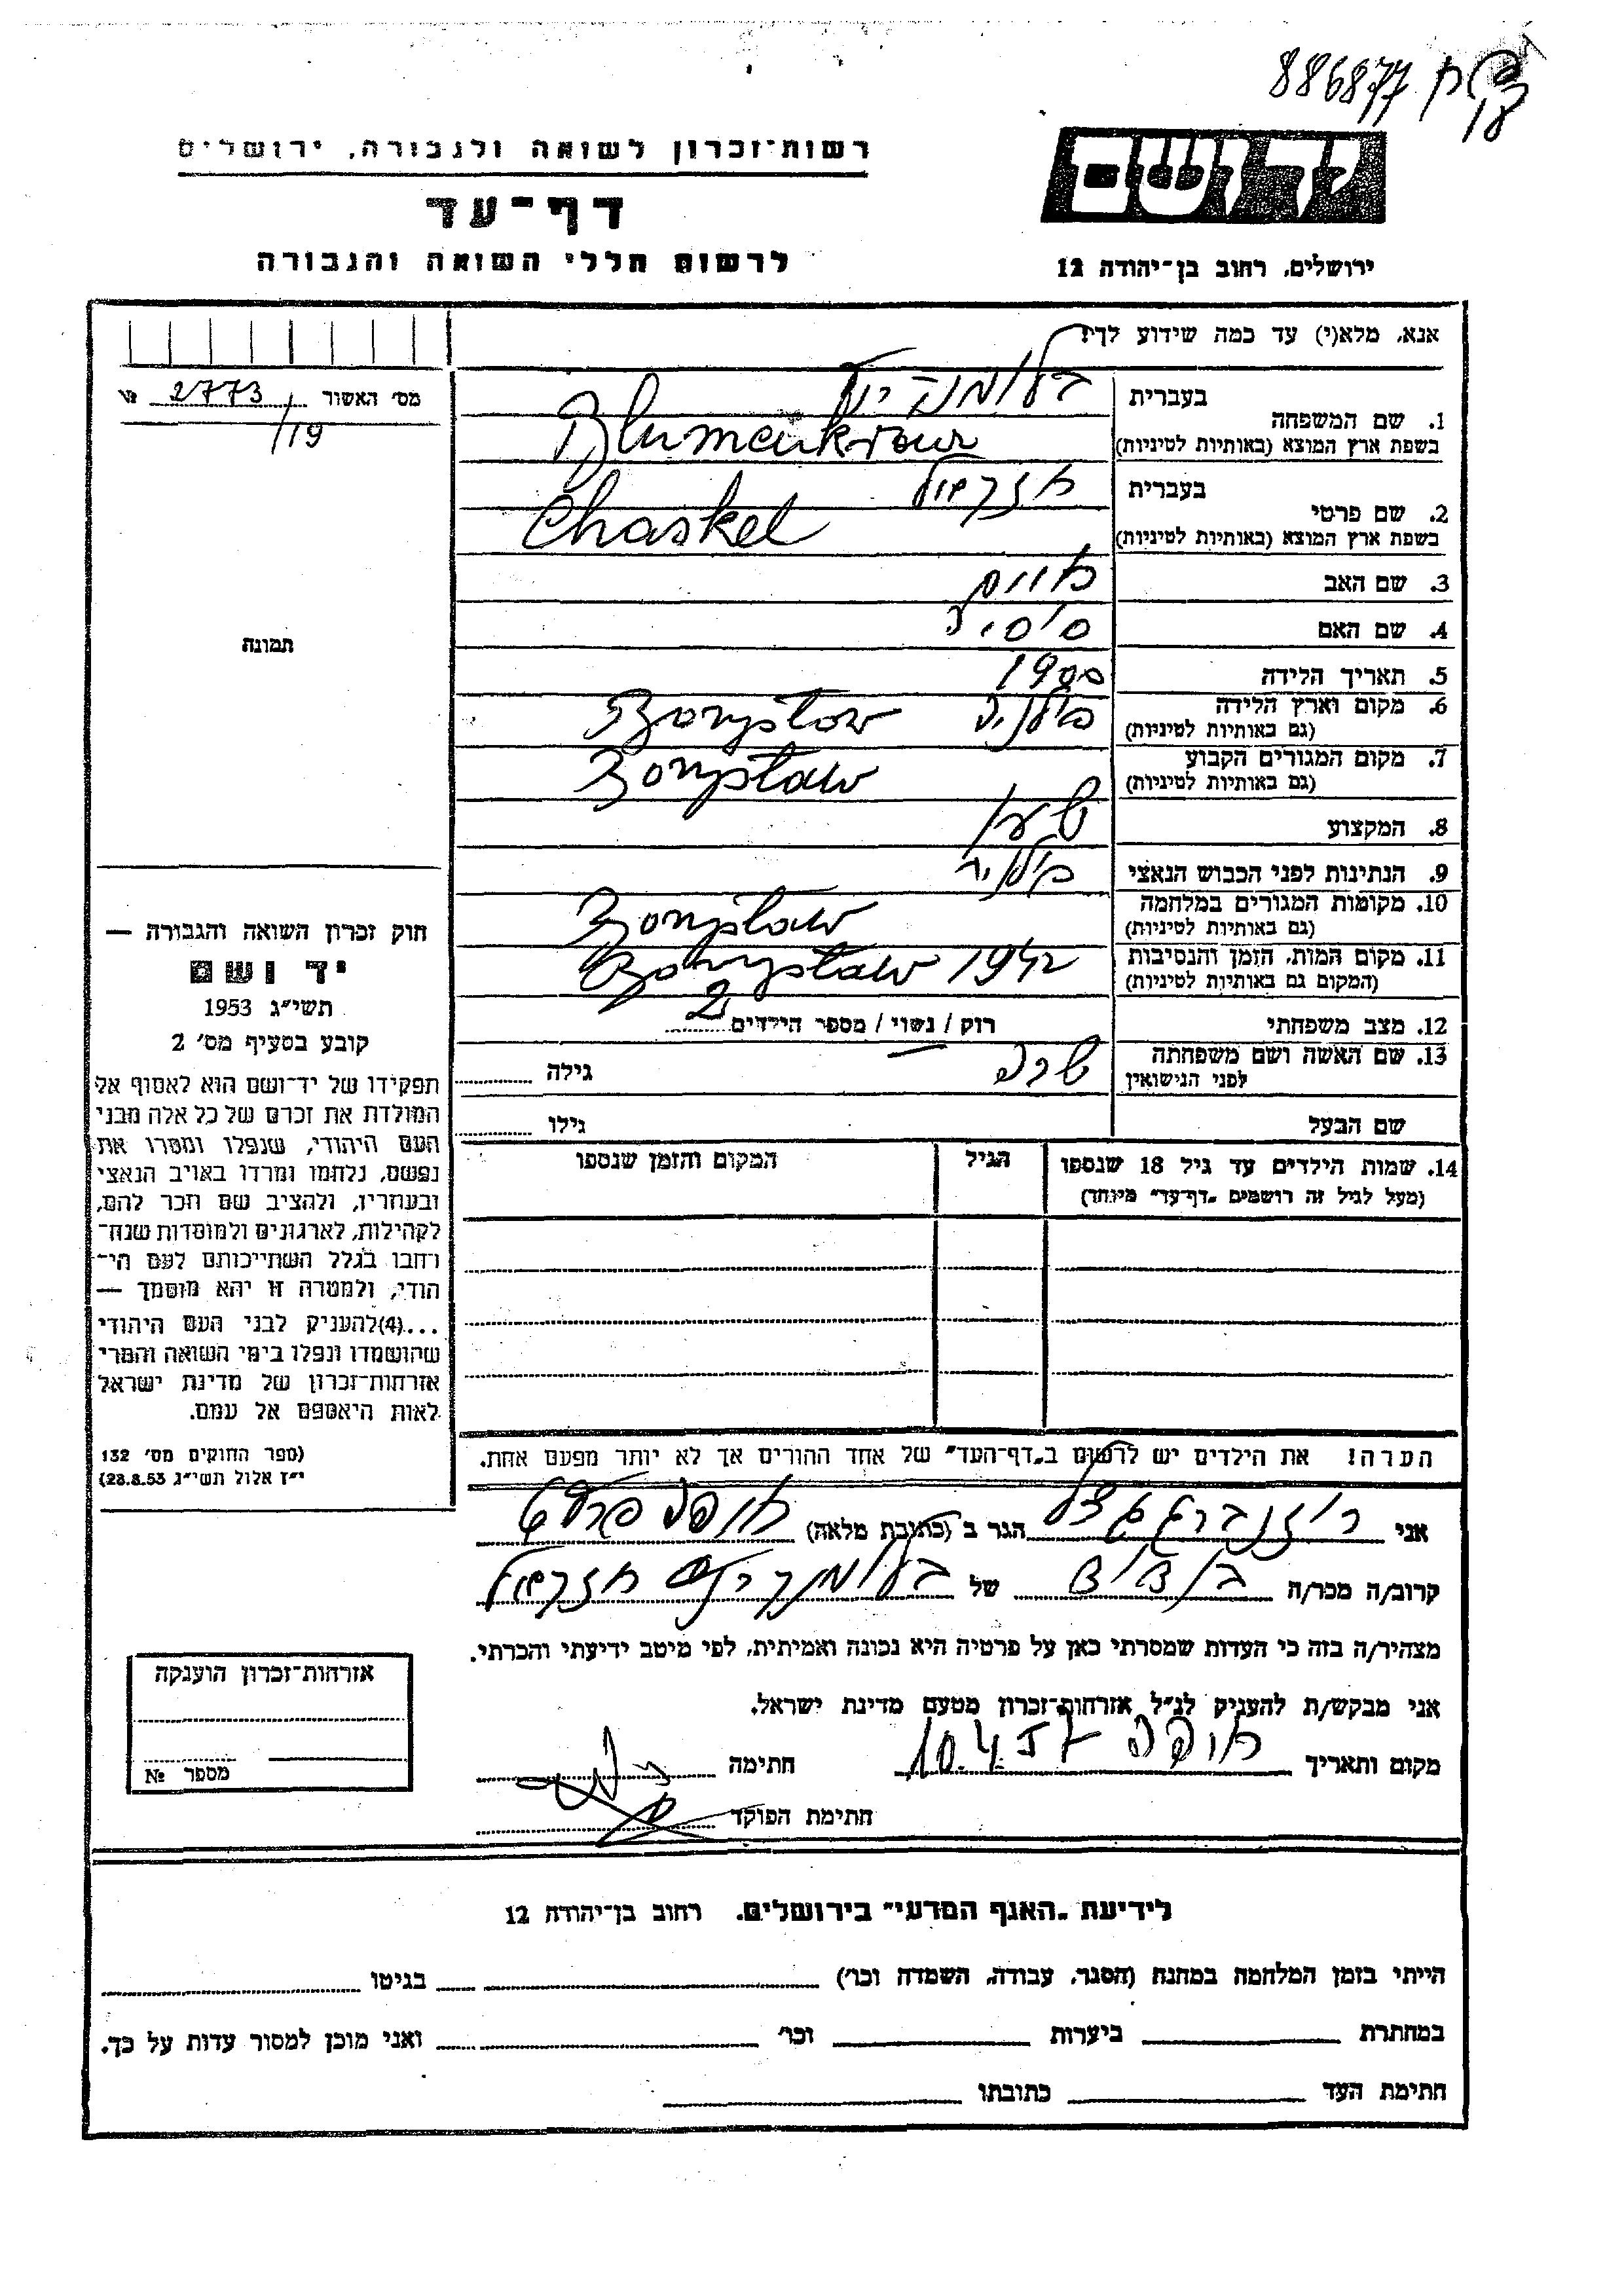 886877
רשות־זכרון לשואה ולגבורה, ירושלים
דף־עד
לרשום חללי השואה והגבורה
יד ושם
ירושלים, רחוב בן־יהודה 12
אנא, מלא(י) עד כמה שידוע לך!
מס׳ האשור 2773 №
/19
תמונה
בעברית
1. שם המשפחה
בשפת ארץ המוצא (באותיות לטיניות)
בעברית
2. שם פרטי יחזקאל
בשפת ארץ המוצא (באותיות לטיניות) Chaskel
3. שם האב חיים
4. שם האם
5. תאריך הלידה 1900
6. מקום וארץ הלידה פולניה Borysław
(גם באותיות לטיניות)
7. מקום המגורים הקבוע Borysław
(גם באותיות לטיניות)
8. המקצוע
9. הנתינות לפני הכבוש הנאצי פולניה
10. מקומות המגורים במלחמה Borysław
(גם באותיות לטיניות)
11. מקום המות, הזמן והנסיבות Borysław 1942
(המקום גם באותיות לטיניות)
12. מצב משפחתי רווק / נשוי / מספר הילדים 2
13. שם האשה ושם משפחתה שרה גילה
לפני הנישואין
שם הבעל גילו
14. שמות הילדים עד גיל 18 שנספו הגיל המקום והזמן שנספו
(מעל לגיל זה רושמים „דף־עד״ מיוחד)
הערה! את הילדים יש לרשום ב„דף־העד״ של אחד ההורים אך לא יותר מפעם אחת.
חוק זכרון השואה והגבורה —
יד ושם
תשי״ג 1953
קובע בסעיף מס׳ 2
תפקידו של יד־ושם הוא לאסוף אל
המולדת את זכרם של כל אלה מבני
העם היהודי, שנפלו ומסרו את
נפשם, נלחמו ומרדו באויב הנאצי
ובעוזריו, ולהציב שם וזכר להם,
לקהילות, לארגונים ולמוסדות שנח־
רבו בגלל השתייכותם לעם הי־
הודי, ולמטרה זו יהא מוסמך —
...(4)להעניק לבני העם היהודי
שהושמדו ונפלו בימי השואה והמרי
אזרחות־זכרון של מדינת ישראל
לאות היאספם אל עמם.
(ספר החוקים מס׳ 132
י״ז אלול תשי״ג 28.8.53)
אני הגר ב (כתובת מלאה)
קרוב/ה מכר/ה בן דוד של יחזקאל
מצהיר/ה בזה כי העדות שמסרתי כאן על פרטיה היא נכונה ואמיתית, לפי מיטב ידיעתי והכרתי.
אני מבקש/ת להעניק לנ״ל אזרחות־זכרון מטעם מדינת ישראל.
מקום ותאריך חיפה 10.4.57 חתימה
חתימת הפוקד
אזרחות־זכרון הוענקה
מספר №
לידיעת „האגף המדעי״ בירושלים, רחוב בן־יהודה 12
הייתי בזמן המלחמה במחנה (הסגר, עבודה, השמדה וכו׳) בגיטו
במחתרת ביערות וכו׳ ואני מוכן למסור עדות על כך.
חתימת העד כתובתו